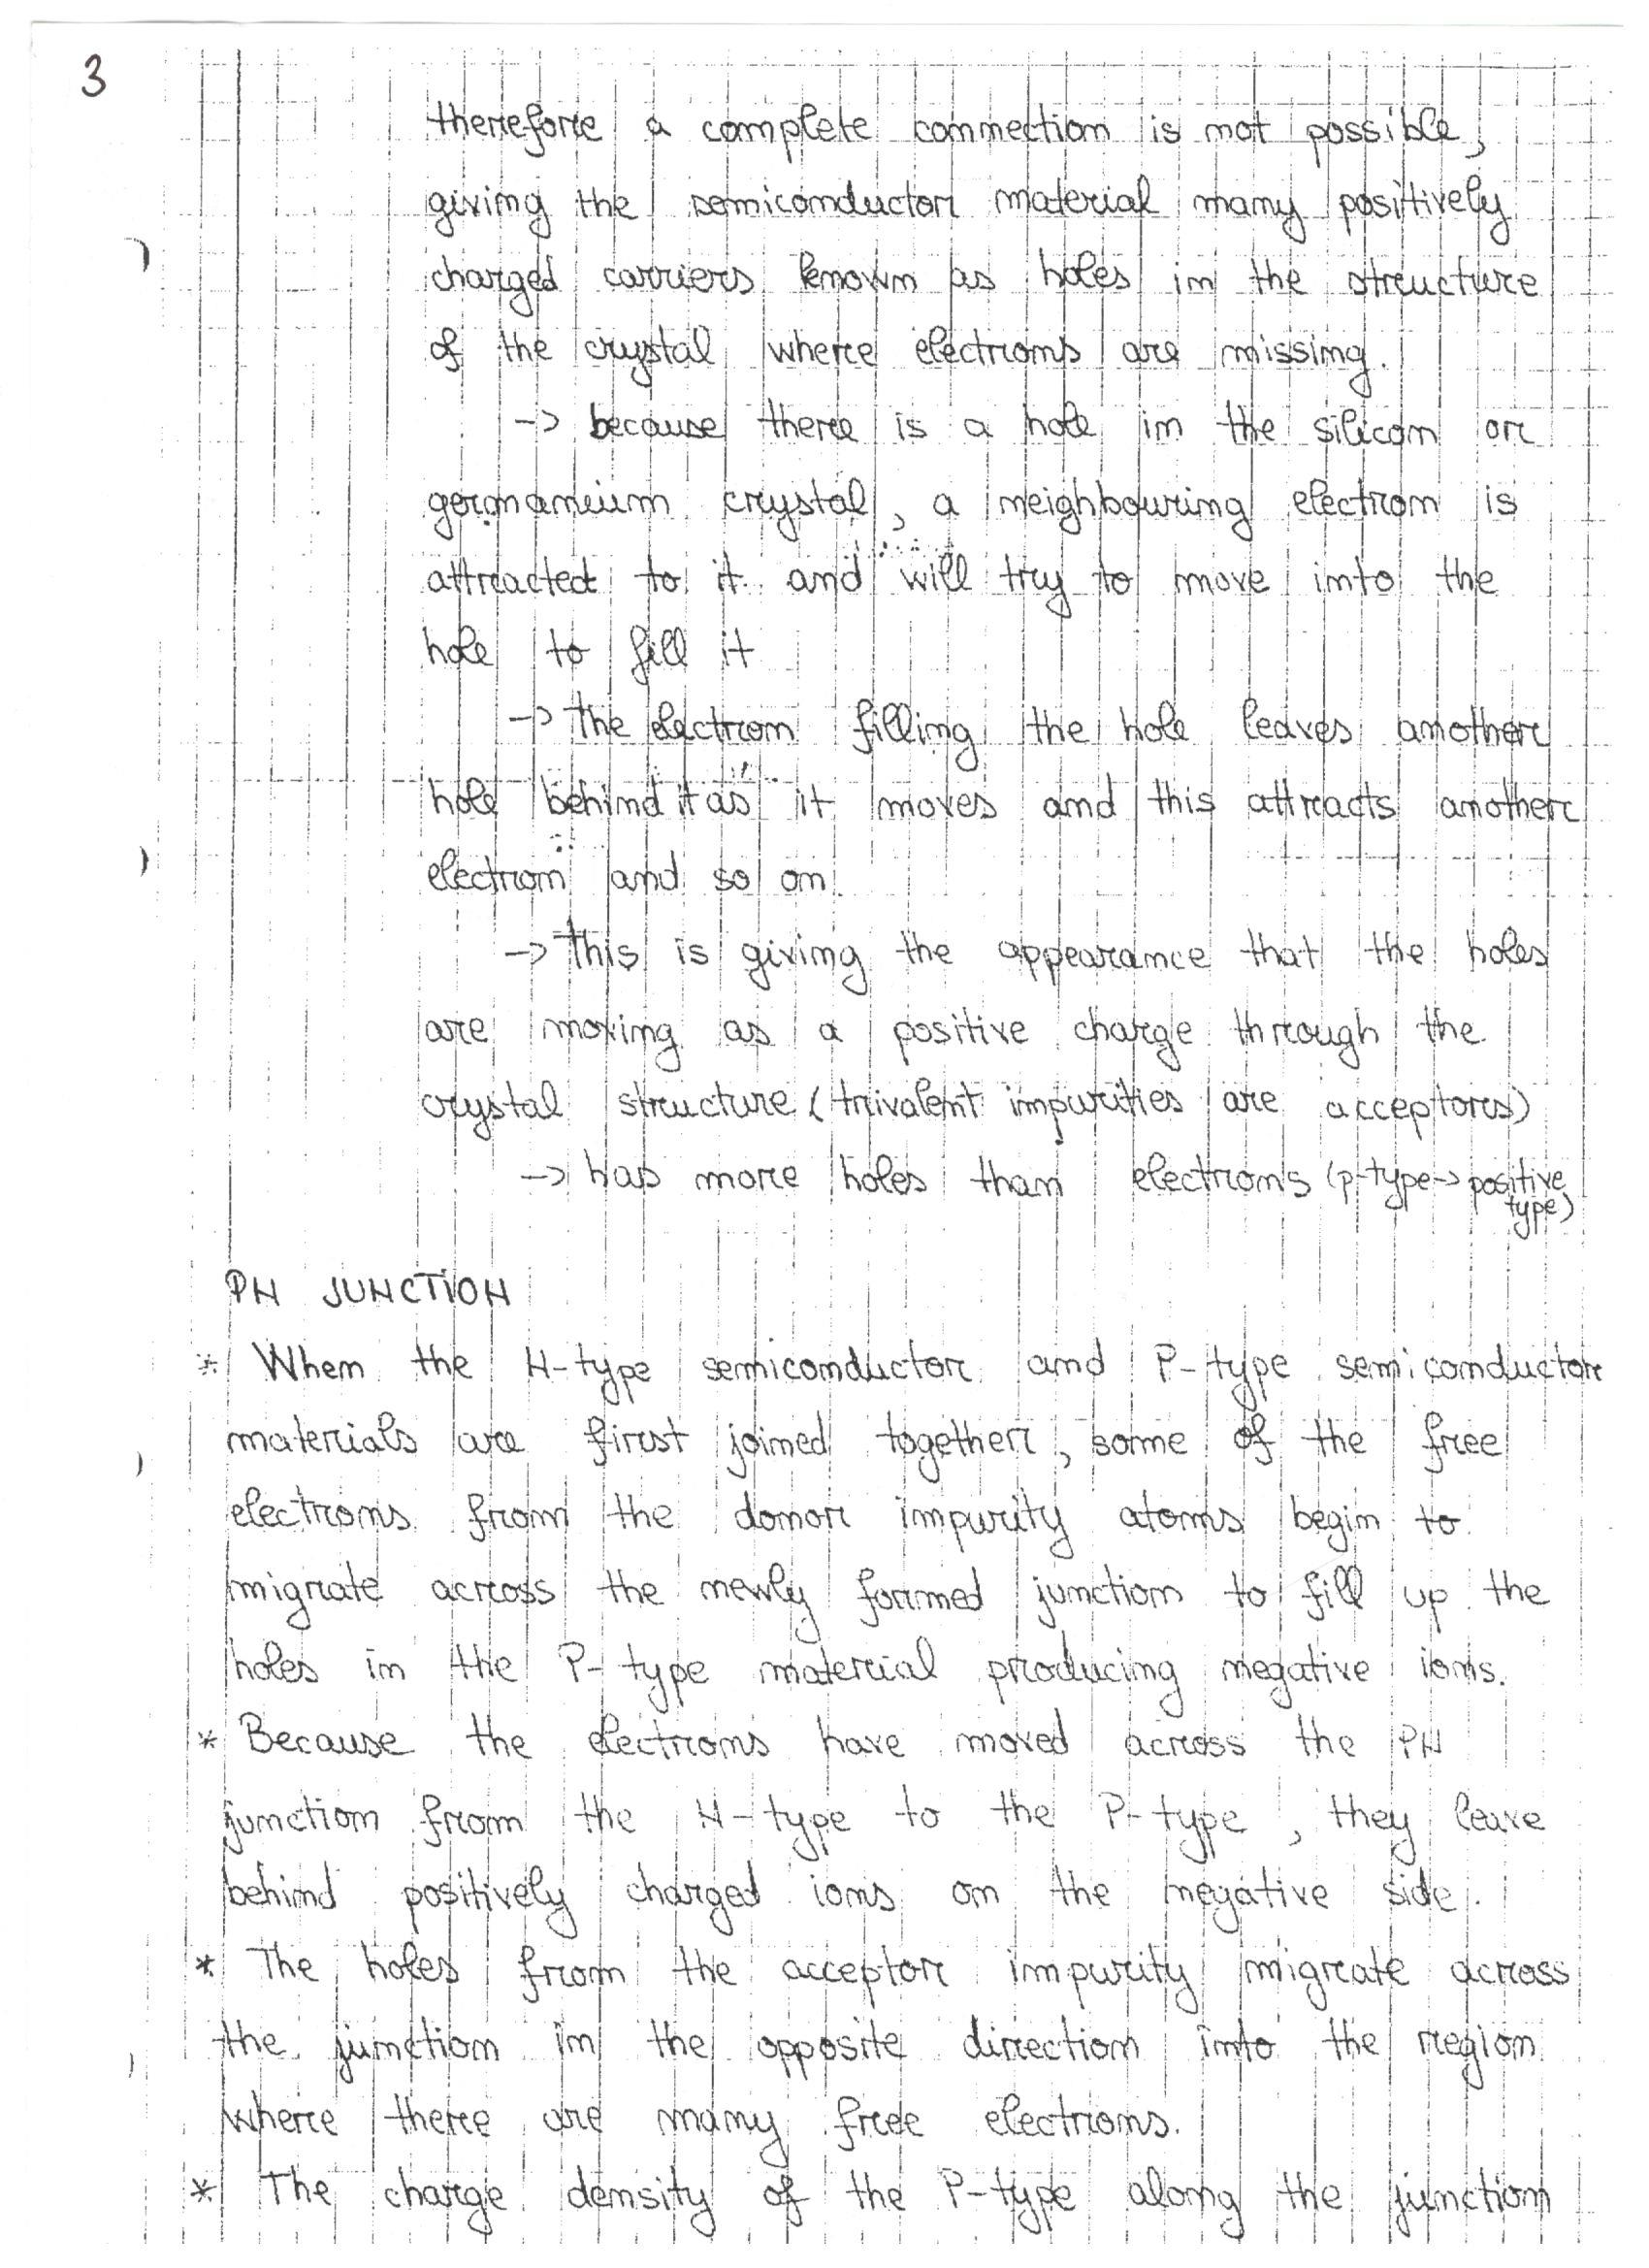 3
therefore a complete connection is not possible,
giving the semiconductor material many positively
charged carriers known as holes in the structure
of the crystal where electrons are missing.
-> because there is a hole in the silicon or
germaneium crystal, a neighbouring electron is
attracted to it and will try to move into the
hole to fill it
-> The electron filling the hole leaves another
hole behind it as it moves and this attracts another
electron and so on
-> This is giving the appearance that the holes
are moving as a positive charge through the
crystal structure (trivalent impurities are acceptors)
-> has more holes than electrons (p-type -> positive
type)
PN JUNCTION
* When the N-type semiconductor and P-type semiconductor
materials are first joined together, some of the free
electrons from the donor impurity atoms begin to
migrate across the newly formed junction to fill up the
holes in the P-type material producing negative ions.
* Because the electrons have moved across the PN
junction from the N-type to the P-type, they leave
behind positively charged ions on the negative side.
* The holes from the acceptor impurity migrate across
the junction in the opposite direction into the region
where there are many free electrons.
* The charge density of the P-type along the junction